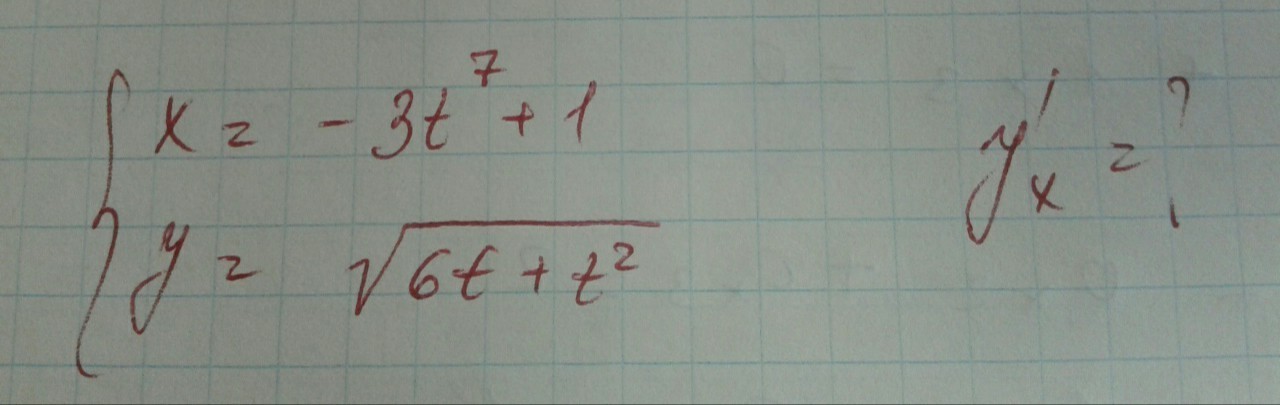 x = -3t⁷ + 1
y = √(6t + t²)
y'ₓ = ?